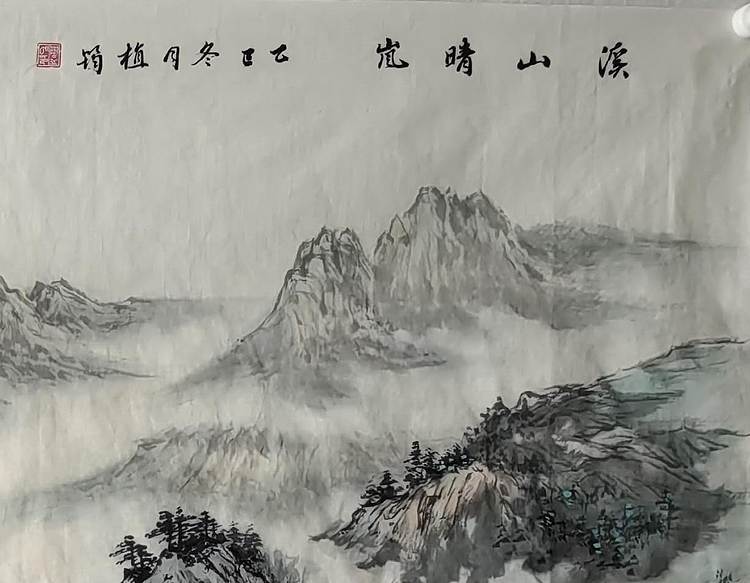 溪山晴岚 乙巳冬月植筠